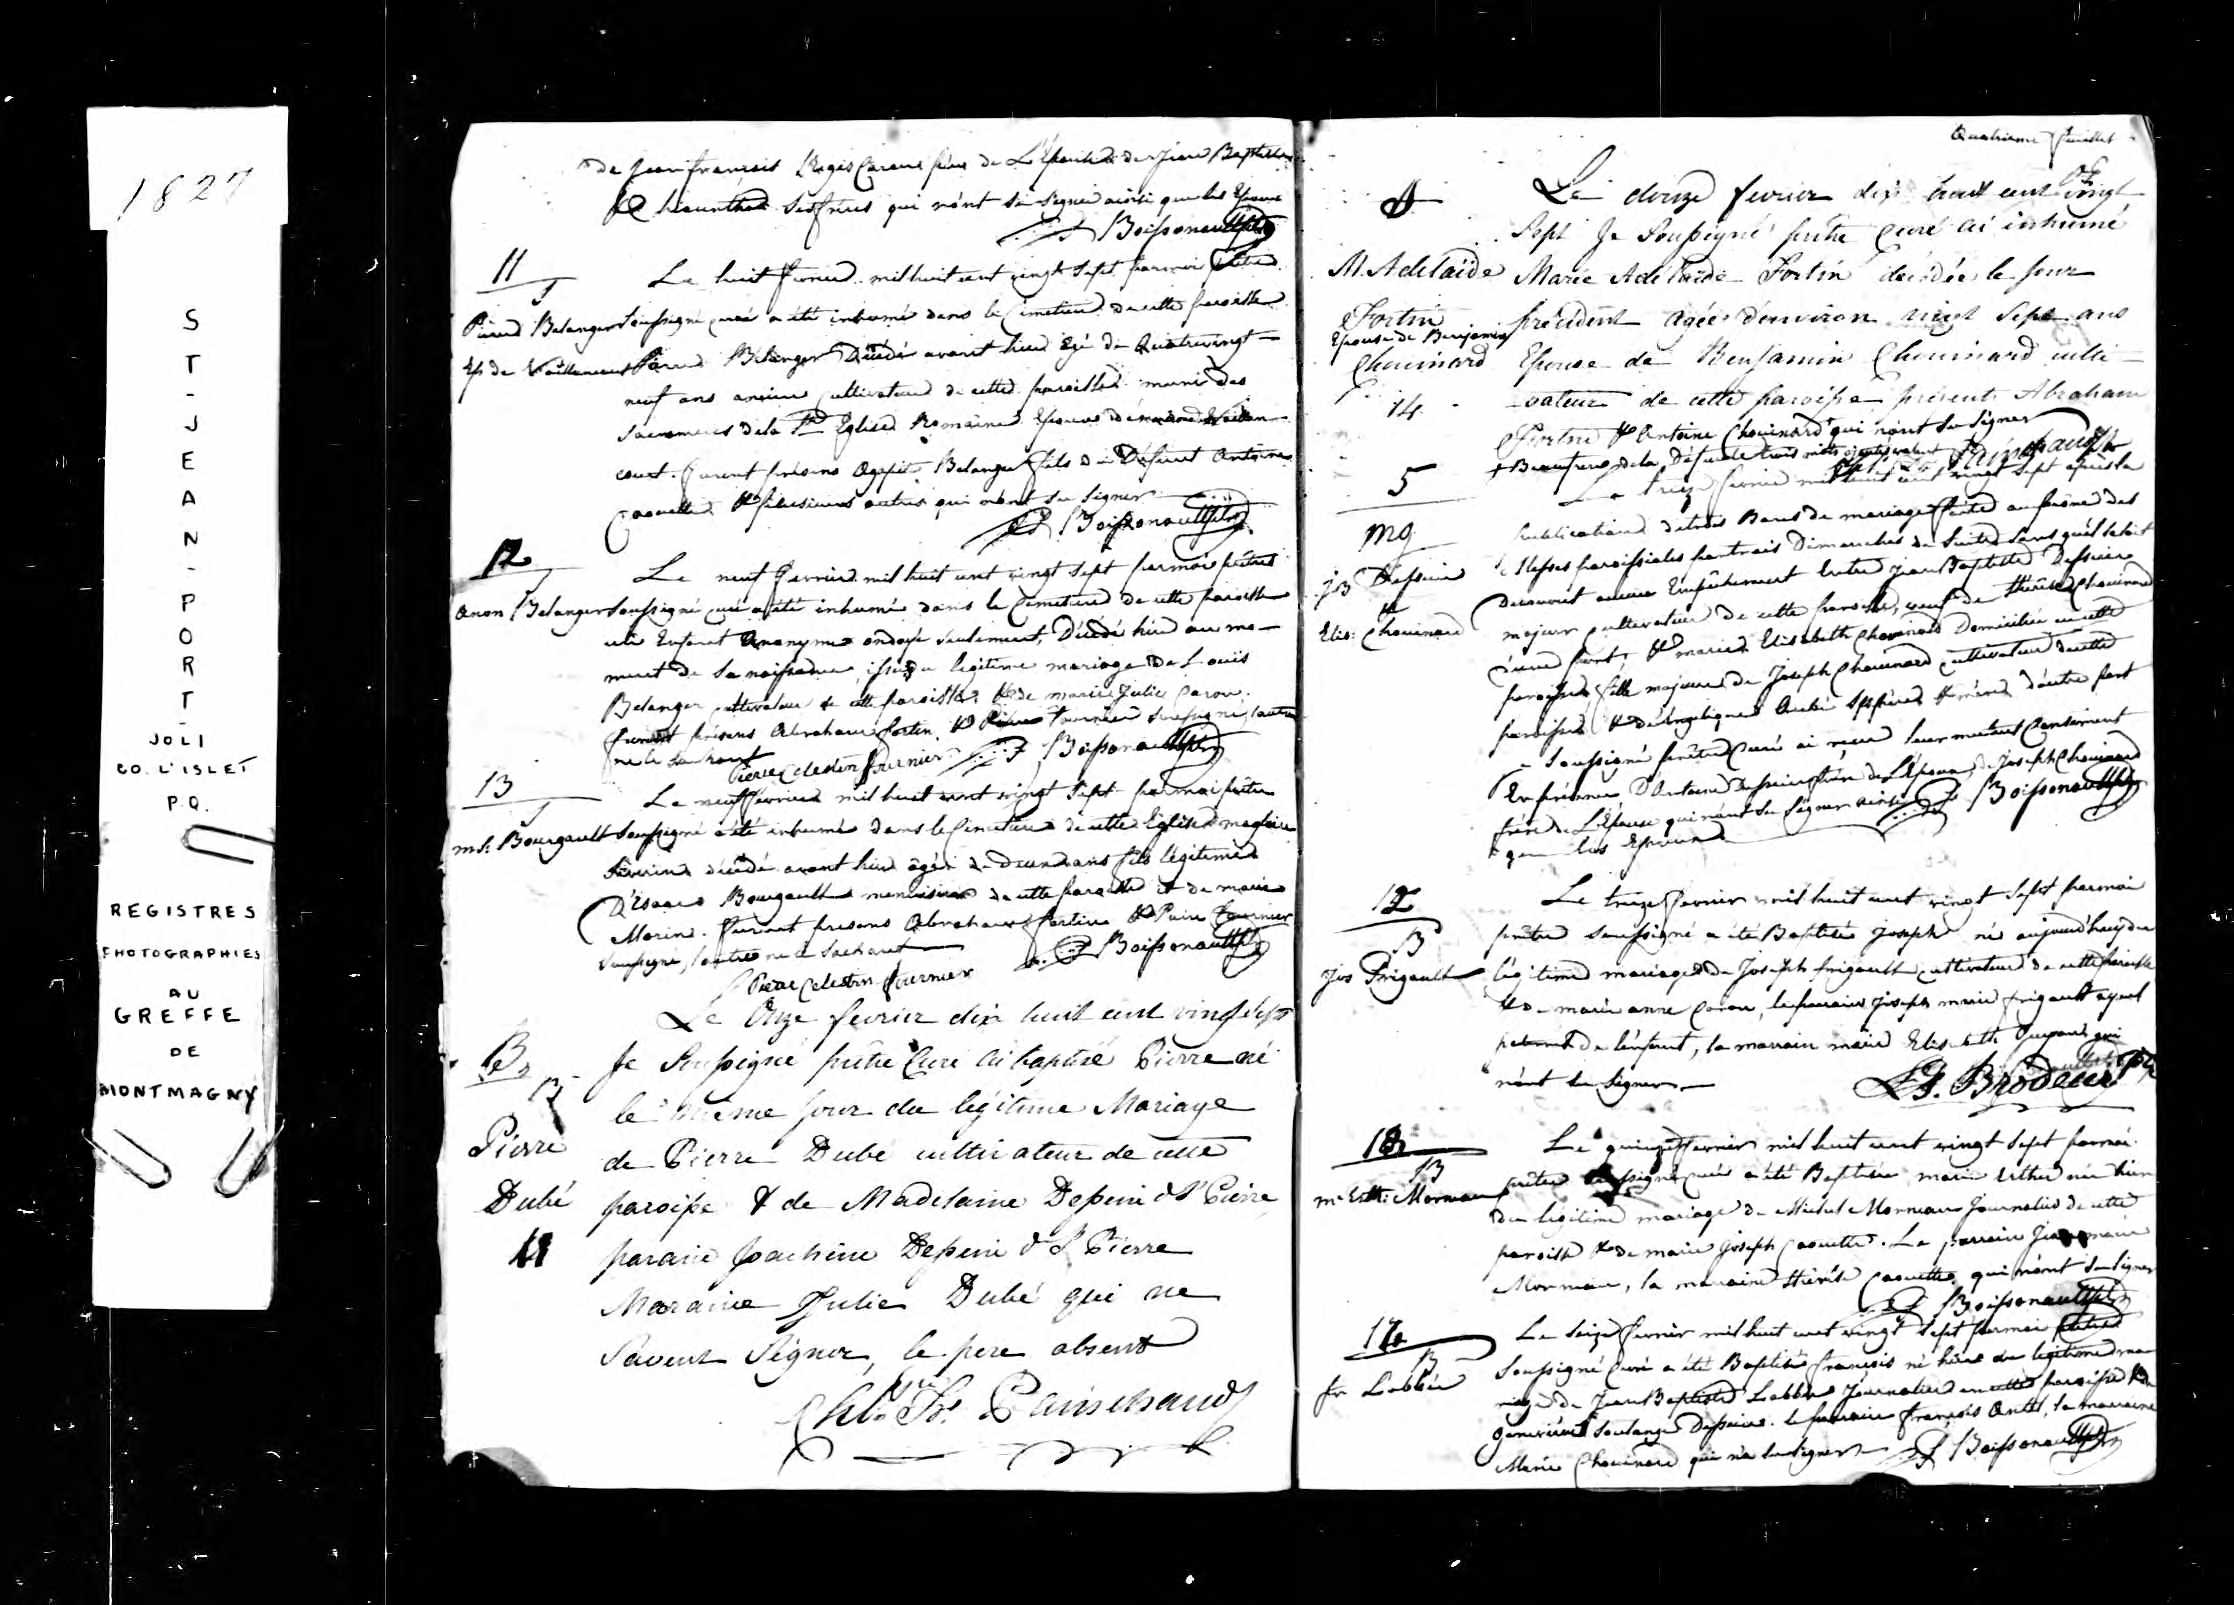 1827
ST-JEAN-PORT-
JOLI
CO. L'ISLET
P.Q.
REGISTRES
PHOTOGRAPHIES
AU
GREFFE
DE
MONTMAGNY
de Jean françois Régis Caron père de L'Epouse de Jean Baptiste
ses frères qui n'ont su signer ainsi que les Epoux
Boissonnault ptre
11
S
Pierre Belanger
Ep de Vaillancourt
Le huit fevrier mil huit cent vingt sept par moi prêtre
soussigné curé a été inhumé dans le Cimetiere de cette paroisse
Pierre Belanger Décédé avant hier agé de Quatrevingt-
neuf ans ancien cultivateur de cette paroisse muni des
sacremens de la Ste Eglise Romaine Epoux de Vaillan-
court. furent présens Agapit Belanger fils du Défunt Antoine
Caouette & plusieurs autres qui n'ont su signer
Boissonnault ptre
12
S
Anon Belanger
Le neuf Fevrier mil huit cent vingt sept par moi prêtre
soussigné curé a été inhumé dans le Cimetiere de cette paroisse
un Enfant Anonyme ondoyé seulement, Décédé hier au mo-
ment de sa naissance, issu du legitime mariage de Louis
Belanger cultivateur de cette paroisse & de marie Julie Caron.
furent présens Abraham fortin & Pierre fournier soussigné, l'autre
ne le sachant
Pierre Celestin fournier Boissonnault ptre
13
S
Bourgault
Le neuf fevrier mil huit cent vingt sept par moi prêtre
soussigné a été inhumé dans le Cimetiere de cette Eglise
Séverin décédé avant hier agé de Deux ans fils légitime
D'Isaac Bourgault menuisier de cette paroisse et de marie
Morin. furent presens Abraham fortin & Pierre Fournier
soussigné, l'autre ne le sachant
Boissonnault ptre
Pierre Celestin fournier
B
Pierre
Dubé
11
Le Onze fevrier dix huit cent vingt sept
Je Soussigné prêtre Curé ai baptisé Pierre né
le même jour du légitime Mariage
de Pierre Dubé cultivateur de cette
paroisse & de Madelaine Dessein dt St Pierre
parain Joachim Dessein dt St Pierre
Maraine Julie Dubé qui ne
Savent Signer, le pere absent
Chs Frs Painchaud
Quatrieme feuillet
S
M. Adelaïde
Fortin
Epouse de Benjamin
Chouinard
14
Le douze fevrier dix huit cent vingt
sept Je Soussigné prêtre Curé ai inhumé
Marie Adelaïde Fortin décédée le jour
précédent agée d'environ vingt sept ans
Epouse de Benjamin Chouinard culti-
-vateur de cette paroisse présents Abraham
Fortin & Antoine Chouinard qui n'ont su signer
+ Beaufrere de la Défunte trois mots ajoutés valent Painchaud ptre
5
mg
JB Dessein
&
Elis: Chouinard
Le treize fevrier mil huit cent vingt sept après la
publication de trois Bans de mariage faite au prône des
Messes paroissiales par trois Dimanches de Suite sans qu'il se soit
decouvert aucun Empêchement Entre Jean Baptiste Dessein
majeur cultivateur de cette paroisse, veuf de thérèse Chouinard
d'une part, & marie Elisabeth Chouinard Domiciliée en cette
paroisse, fille majeure de Joseph Chouinard cultivateur de cette
paroisse & de Angelique Aubé ses père & mère d'autre part
Soussigné prêtre Curé ai reçu leur mutuel Consentement
En présence D'Antoine Dessein frère de L'Epoux, de Joseph Chouinard
frère de L'Epouse qui n'ont su signer ainsi Boissonnault ptre
que les Epoux
12
B
Jos Frigault
Le treize fevrier mil huit cent vingt sept par moi
prêtre soussigné a été Baptisé Joseph né aujourd'hui du
légitime mariage de Joseph frigault cultivateur de cette paroisse
& de marie anne Caron, le parrain Joseph marie frigault ayeul
paternel de l'enfant, la marraine marie Elisabeth qui
n'ont su signer
Brodeur Ptr
13
B
m Esth: Morneau
Le quinze fevrier mil huit cent vingt sept par moi
prêtre soussigné curé a été Baptisée marie Esther née hier
du legitime mariage de Michel Morneau Journalier de cette
paroisse & de marie Joseph Caouette. Le parrain Jean marie
Morneau, la marraine thérèse Caouette qui n'ont su signer
Boissonnault ptre
14
B
fr Labbée
Le seize fevrier mil huit cent vingt sept par moi prêtre
soussigné Curé a été Baptisé françois né hier du legitime ma-
riage de Jean Baptiste Labbée Journalier en cette paroisse & de
Geneviève Soulange Dessein. le parrain françois la marraine
Marie Chouinard qui n'a su signer Boissonnault ptre